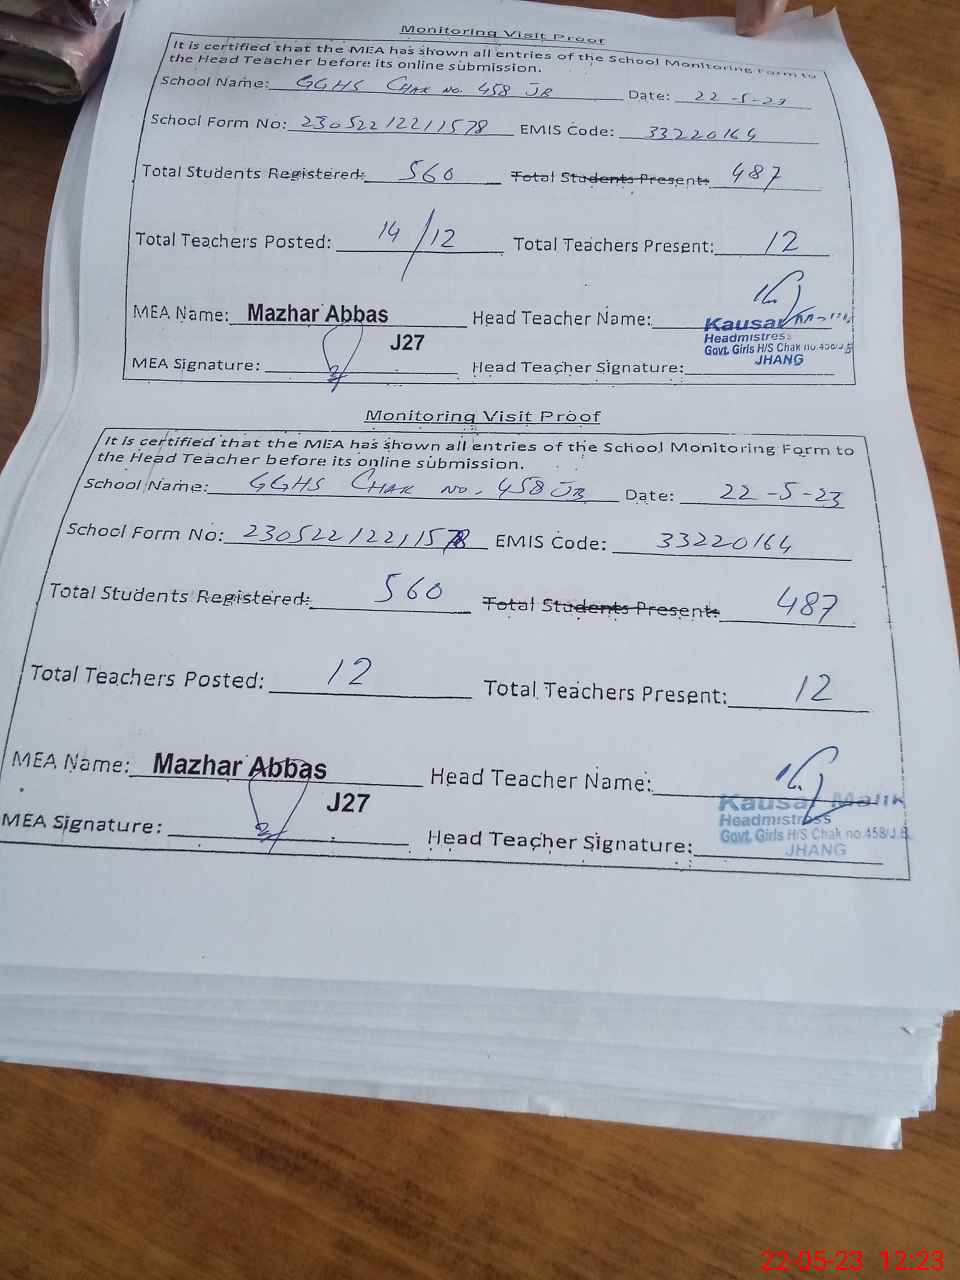 Monitoring Visit Proof
It is certified that the MEA has shown all entries of the School Monitoring Form to
the Head Teacher before its online submission.
School Name: GGHS CHAK NO. 458 JB Date: 22-5-23
School Form No: 23052212211578 EMIS Code: 33220164
Total Students Registered: 560 Total Students Present: 487
Total Teachers Posted: 14/12 Total Teachers Present: 12
MEA Name: Mazhar Abbas Head Teacher Name:
Kausar
Headmistress
J27
Govt. Girls H/S Chak no.458/J.B
JHANG
MEA Signature: Head Teacher Signature:
Monitoring Visit Proof
It is certified that the MEA has shown all entries of the School Monitoring Form to
the Head Teacher before its online submission.
School Name: GGHS CHAK NO. 458 JB Date: 22-5-23
School Form No: 23052212211578 EMIS Code: 33220164
Total Students Registered: 560 Total Students Present: 487
Total Teachers Posted: 12 Total Teachers Present: 12
MEA Name: Mazhar Abbas Head Teacher Name:
Kausar Malik
J27
Headmistress
Govt. Girls H/S Chak no.458/J.B
JHANG
MEA Signature: Head Teacher Signature:
22-05-23 12:23